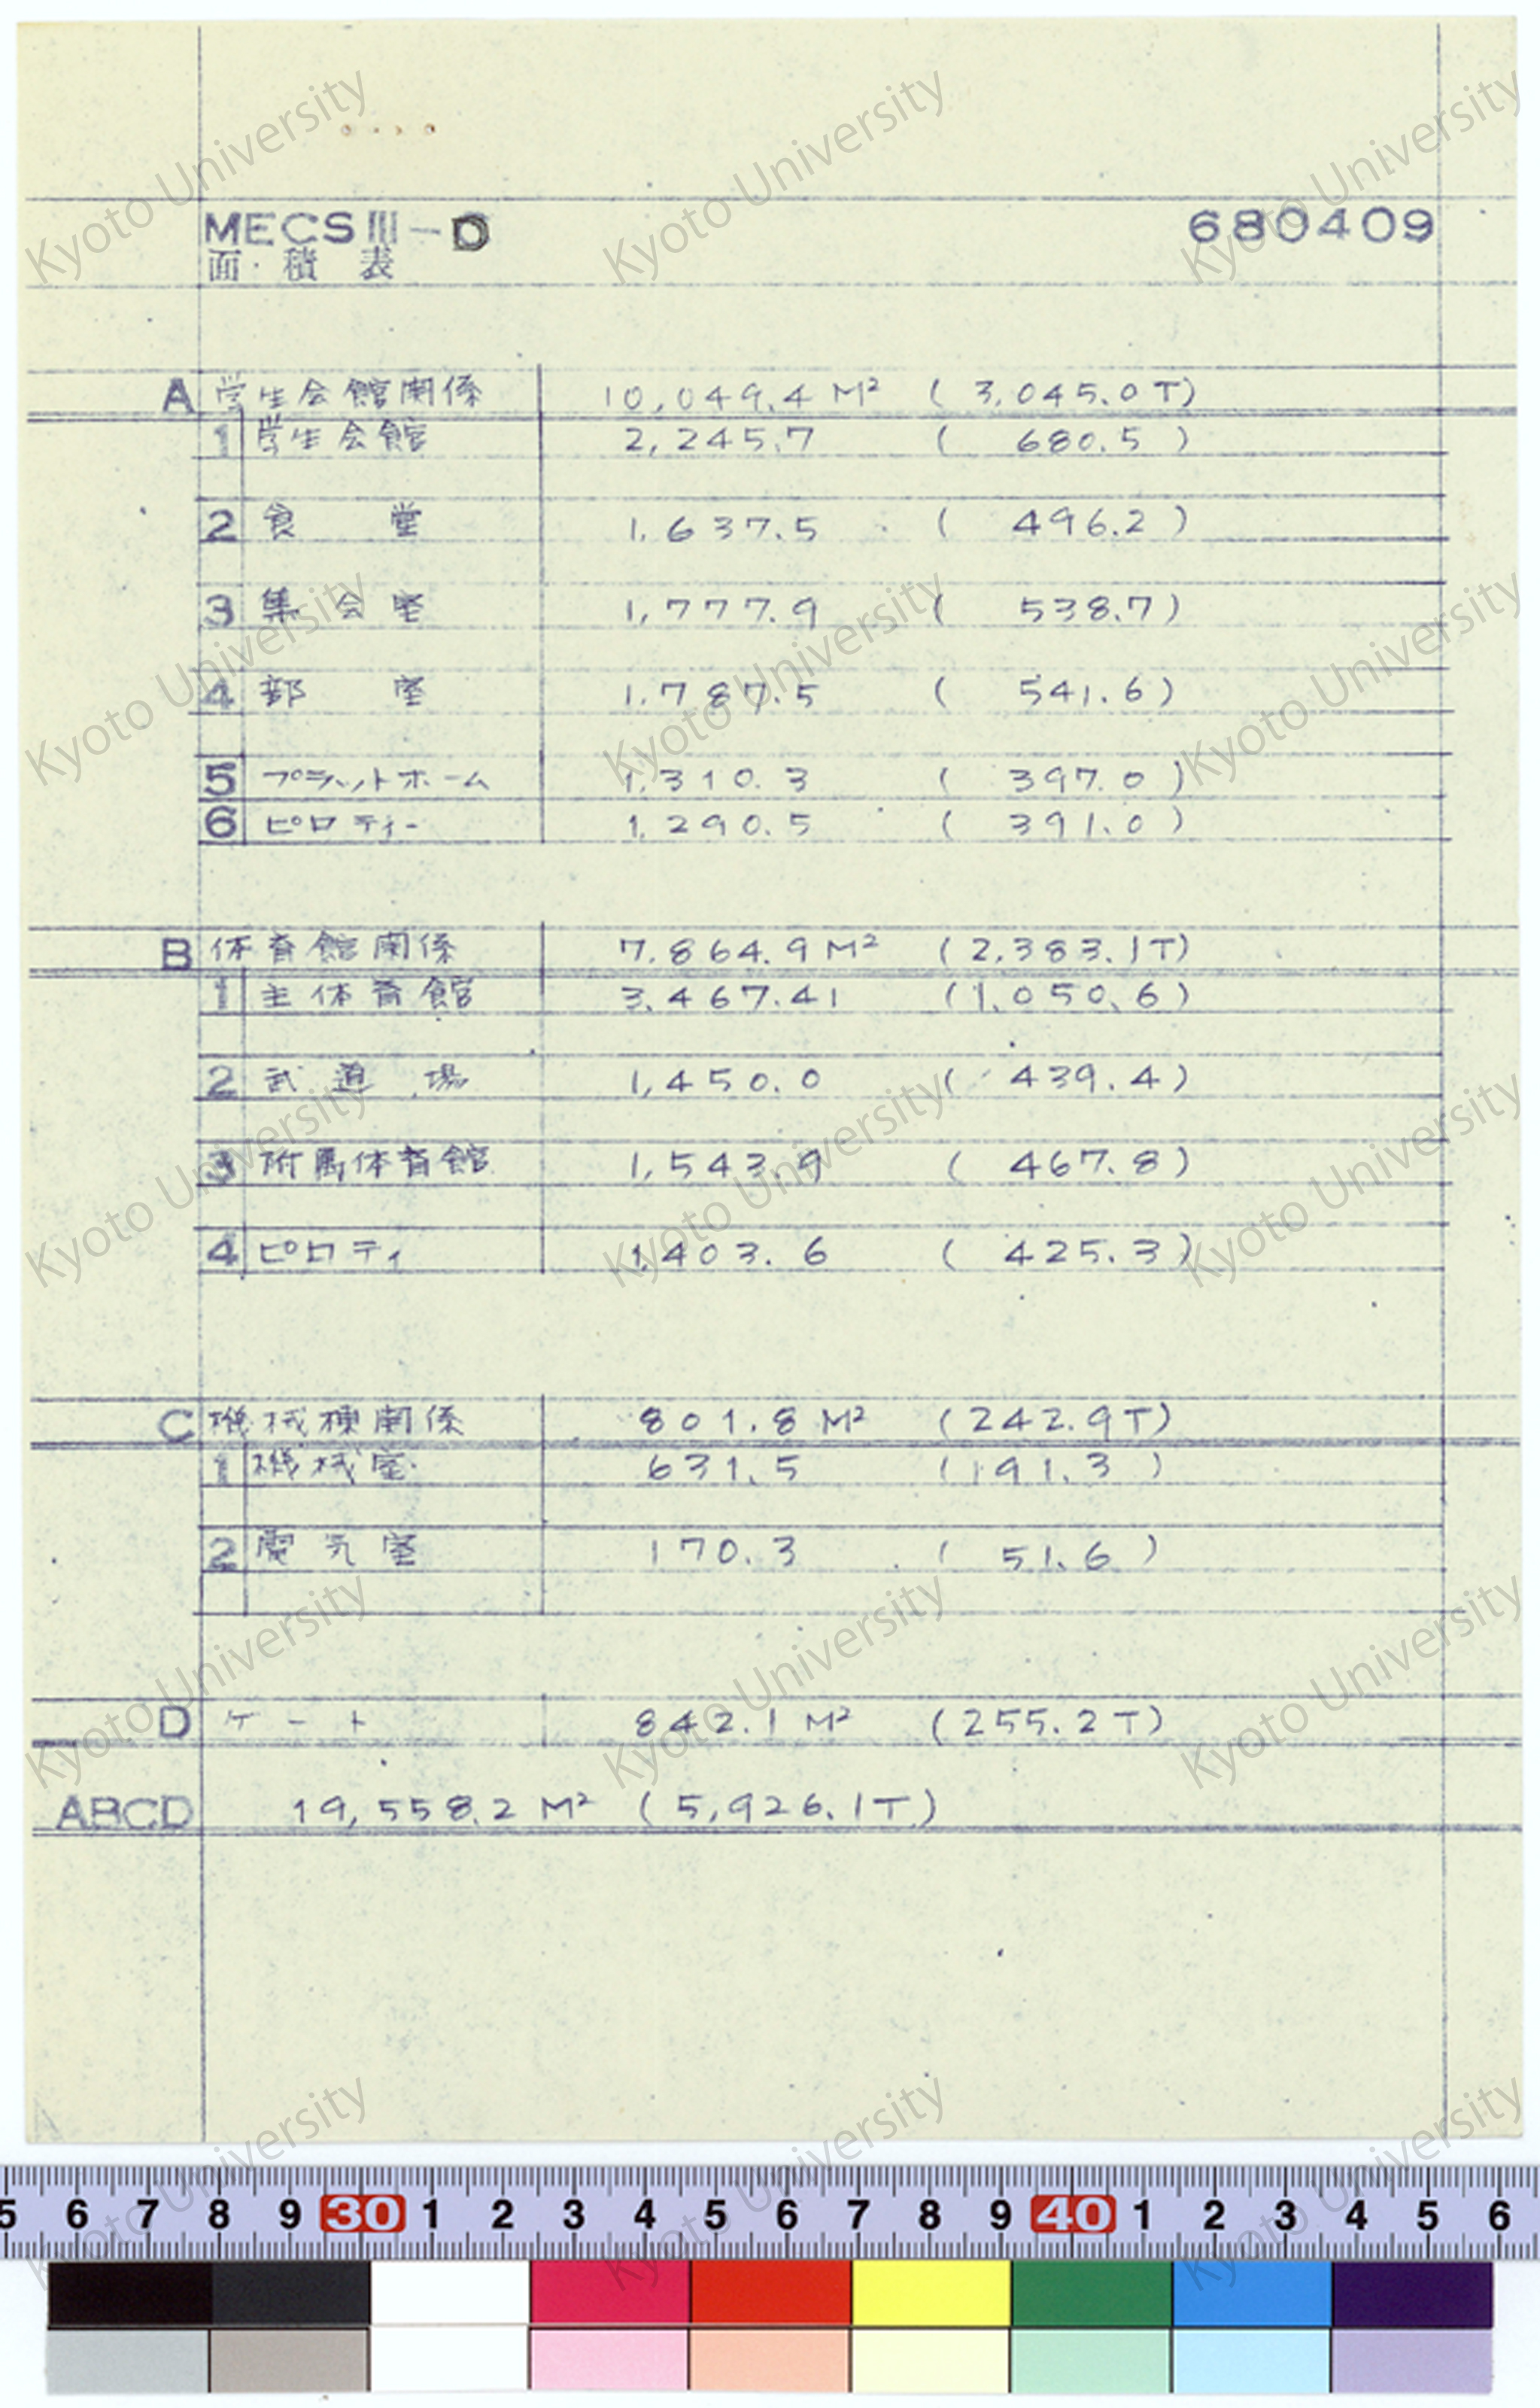 MECS III-D 680409
面・積表
A 学生会館関係 10,049.4 M² (3,045.0T)
1 学生会館 2,245.7 (680.5)
2 食堂 1.637.5 (496.2)
3 集会室 1,777.9 (538.7)
4 部室 1.787.5 (541.6)
5 プラットホーム 1,310.3 (397.0)
6 ピロティー 1.290.5 (391.0)
B 体育館関係 7.864.9 M² (2,383.1T)
1 主体育館 3.467.41 (1,050.6)
2 武道場 1,450.0 (439.4)
3 附属体育館 1,543.9 (467.8)
4 ピロティ 1,403.6 (425.3)
C 機械棟関係 801.8 M² (242.9T)
1 機械室 631.5 (191.3)
2 電気室 170.3 (51.6)
D ゲート 842.1 M² (255.2T)
ABCD 19,558.2 M² (5,926.1T)
5 6 7 8 9 30 1 2 3 4 5 6 7 8 9 40 1 2 3 4 5 6
Kyoto University